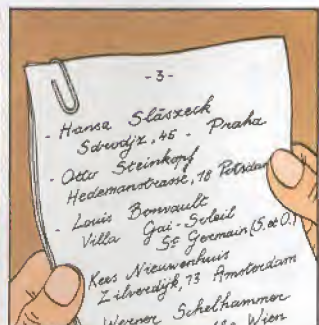 -3-
- Hansa Slászeck
Sdrvdjz, 45 - Praha
- Otto Steinkopf
Hedemanstrasse, 18 Potsdam
- Louis Bonvault
Villa Gai-Soleil
St Germain (S. et O.)
Kees Nieuwenhuis
Zilverdijk, 73 Amsterdam
Werner Schelhammer
Wien